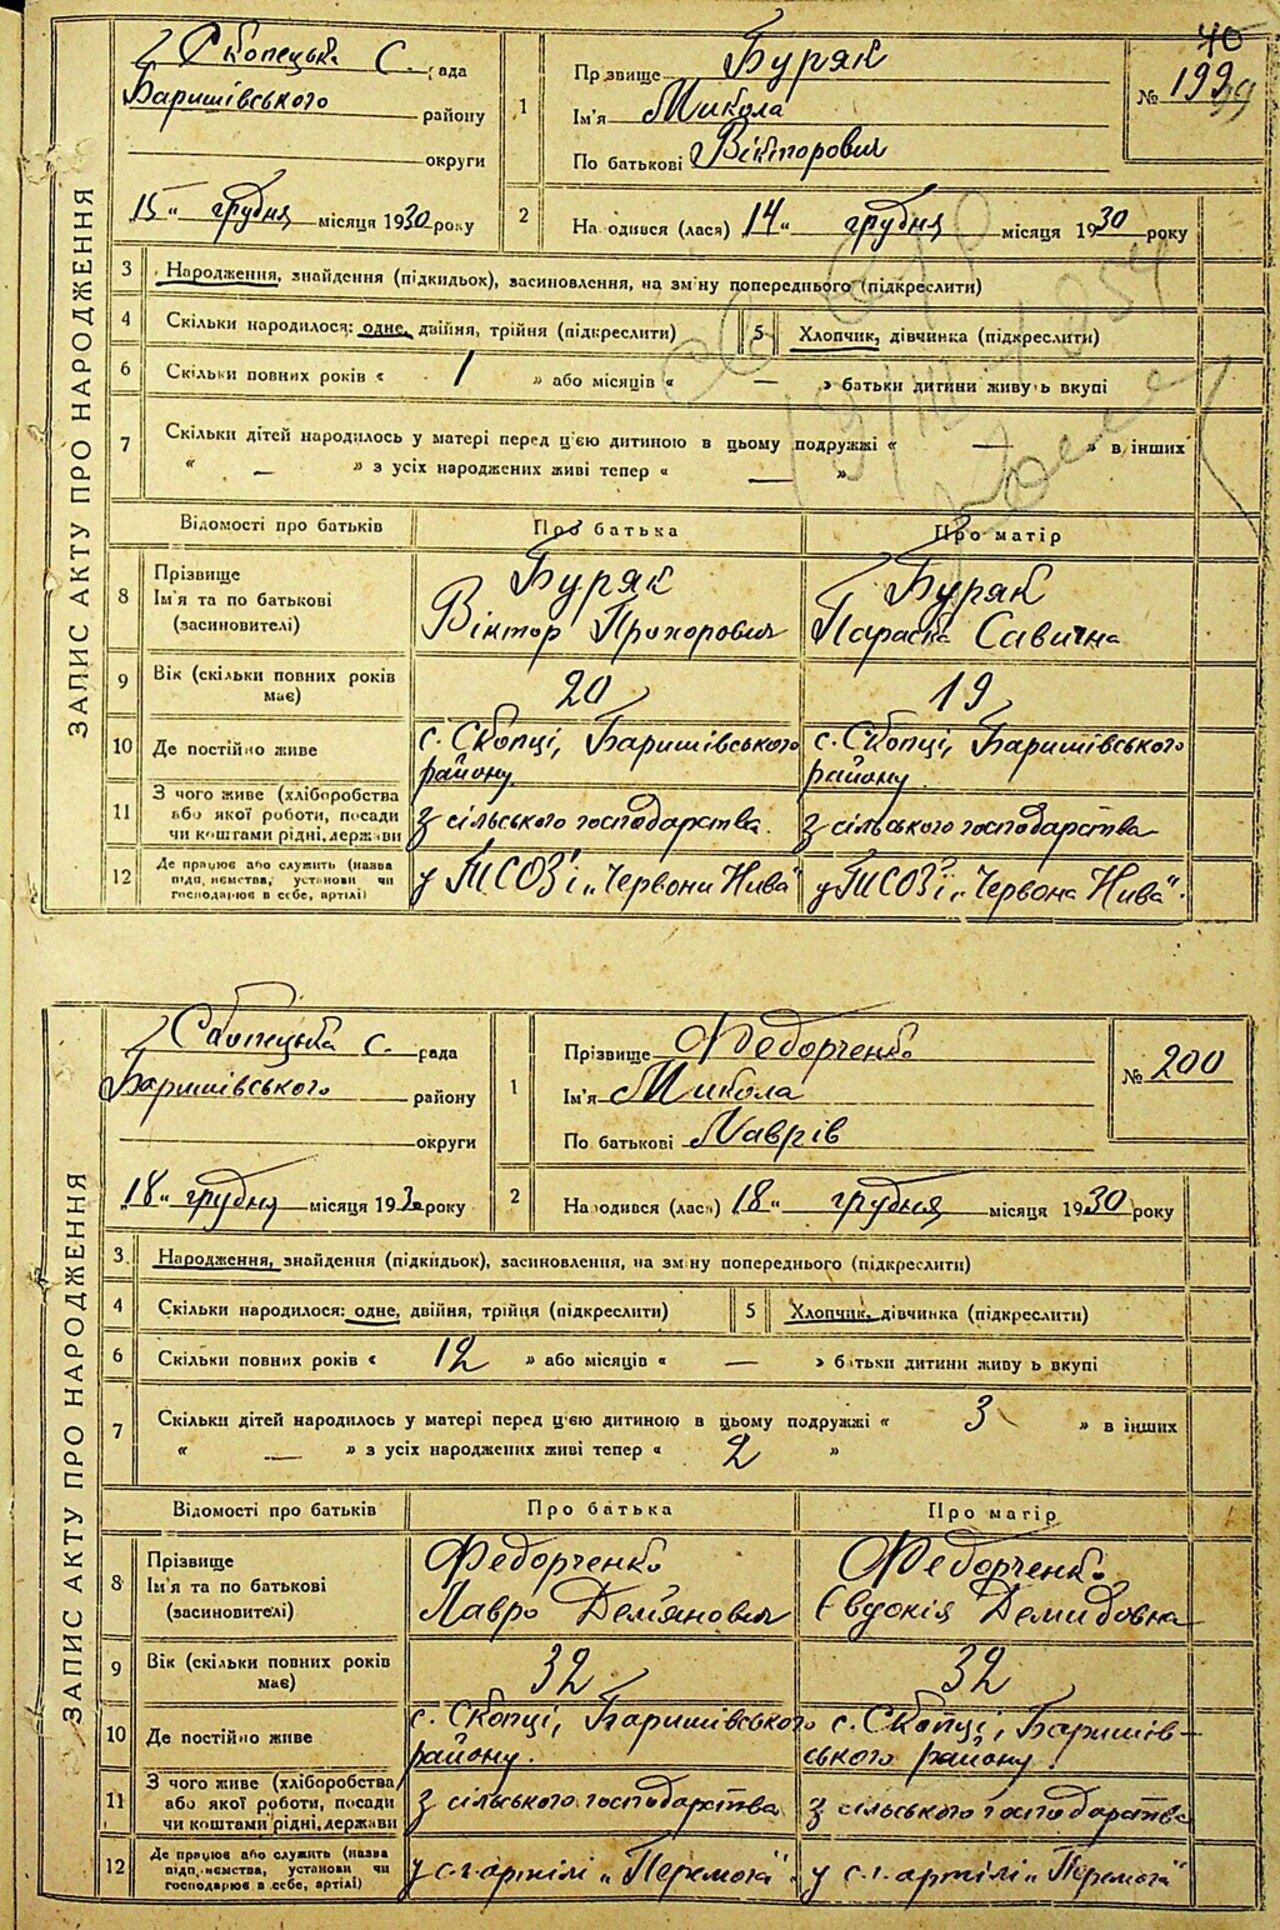 40
Скопецька С. рада
Баришівського району
округи
"15" грудня місяця 1930 року
1
Прізвище Буряк
Ім'я Микола
По батькові Вікторович
№ 199
2
Народився (лася) "14" грудня місяця 1930 року
ЗАПИС АКТУ ПРО НАРОДЖЕННЯ
3 Народження, знайдення (підкидьок), засиновлення, на зміну попереднього (підкреслити)
4 Скільки народилося: одне, двійня, трійня (підкреслити) 5 Хлопчик, дівчинка (підкреслити)
6 Скільки повних років « 1 » або місяців « — » батьки дитини живуть вкупі
7 Скільки дітей народилось у матері перед ц'єю дитиною в цьому подружжі « — » в інших
« — » з усіх народжених живі тепер « — »
Відомості про батьків Про батька Про матір
8 Прізвище Буряк Буряк
Ім'я та по батькові Віктор Прохорович Параска Савична
(засиновителі)
9 Вік (скільки повних років 20 19
має)
10 Де постійно живе с. Скопці, Баришівського с. Скопці, Баришівського
району району
11 З чого живе (хліборобства
або якої роботи, посади з сільського господарства. з сільського господарства
чи коштами рідні, держави
12 Де працює або служить (назва
підприємства, установи чи у ТСОЗ'і „Червони Нива" у ТСОЗ'і „Червона Нива".
господарює в себе, артілі)
Скопецька с. рада
Баришівського району
округи
"18" грудня місяця 1930 року
1
Прізвище Федорченко
Ім'я Микола
По батькові Лаврів
№ 200
2
Народився (лася) "18" грудня місяця 1930 року
ЗАПИС АКТУ ПРО НАРОДЖЕННЯ
3. Народження, знайдення (підкидьок), засиновлення, на зміну попереднього (підкреслити)
4 Скільки народилося: одне, двійня, трійця (підкреслити) 5 Хлопчик, дівчинка (підкреслити)
6 Скільки повних років « 12 » або місяців « — » батьки дитини живуть вкупі
7 Скільки дітей народилось у матері перед ц'єю дитиною в цьому подружжі « 3 » в інших
« — » з усіх народжених живі тепер « 2 »
Відомості про батьків Про батька Про матір
8 Прізвище Федорченко Федорченко
Ім'я та по батькові Лавро Дем'янович Євдокія Демидовна
(засиновителі)
9 Вік (скільки повних років 32 32
має)
10 Де постійно живе с. Скопці, Баришівського с. Скопці, Баришів-
району. ського району
11 З чого живе (хліборобства
або якої роботи, посади з сільського господарства з сільського господарства
чи коштами рідні, держави
12 Де працює або служить (назва
підприємства, установи чи у с.г. артілі „Перемога". у с.г. артілі „Перемога"
господарює в себе, артілі)